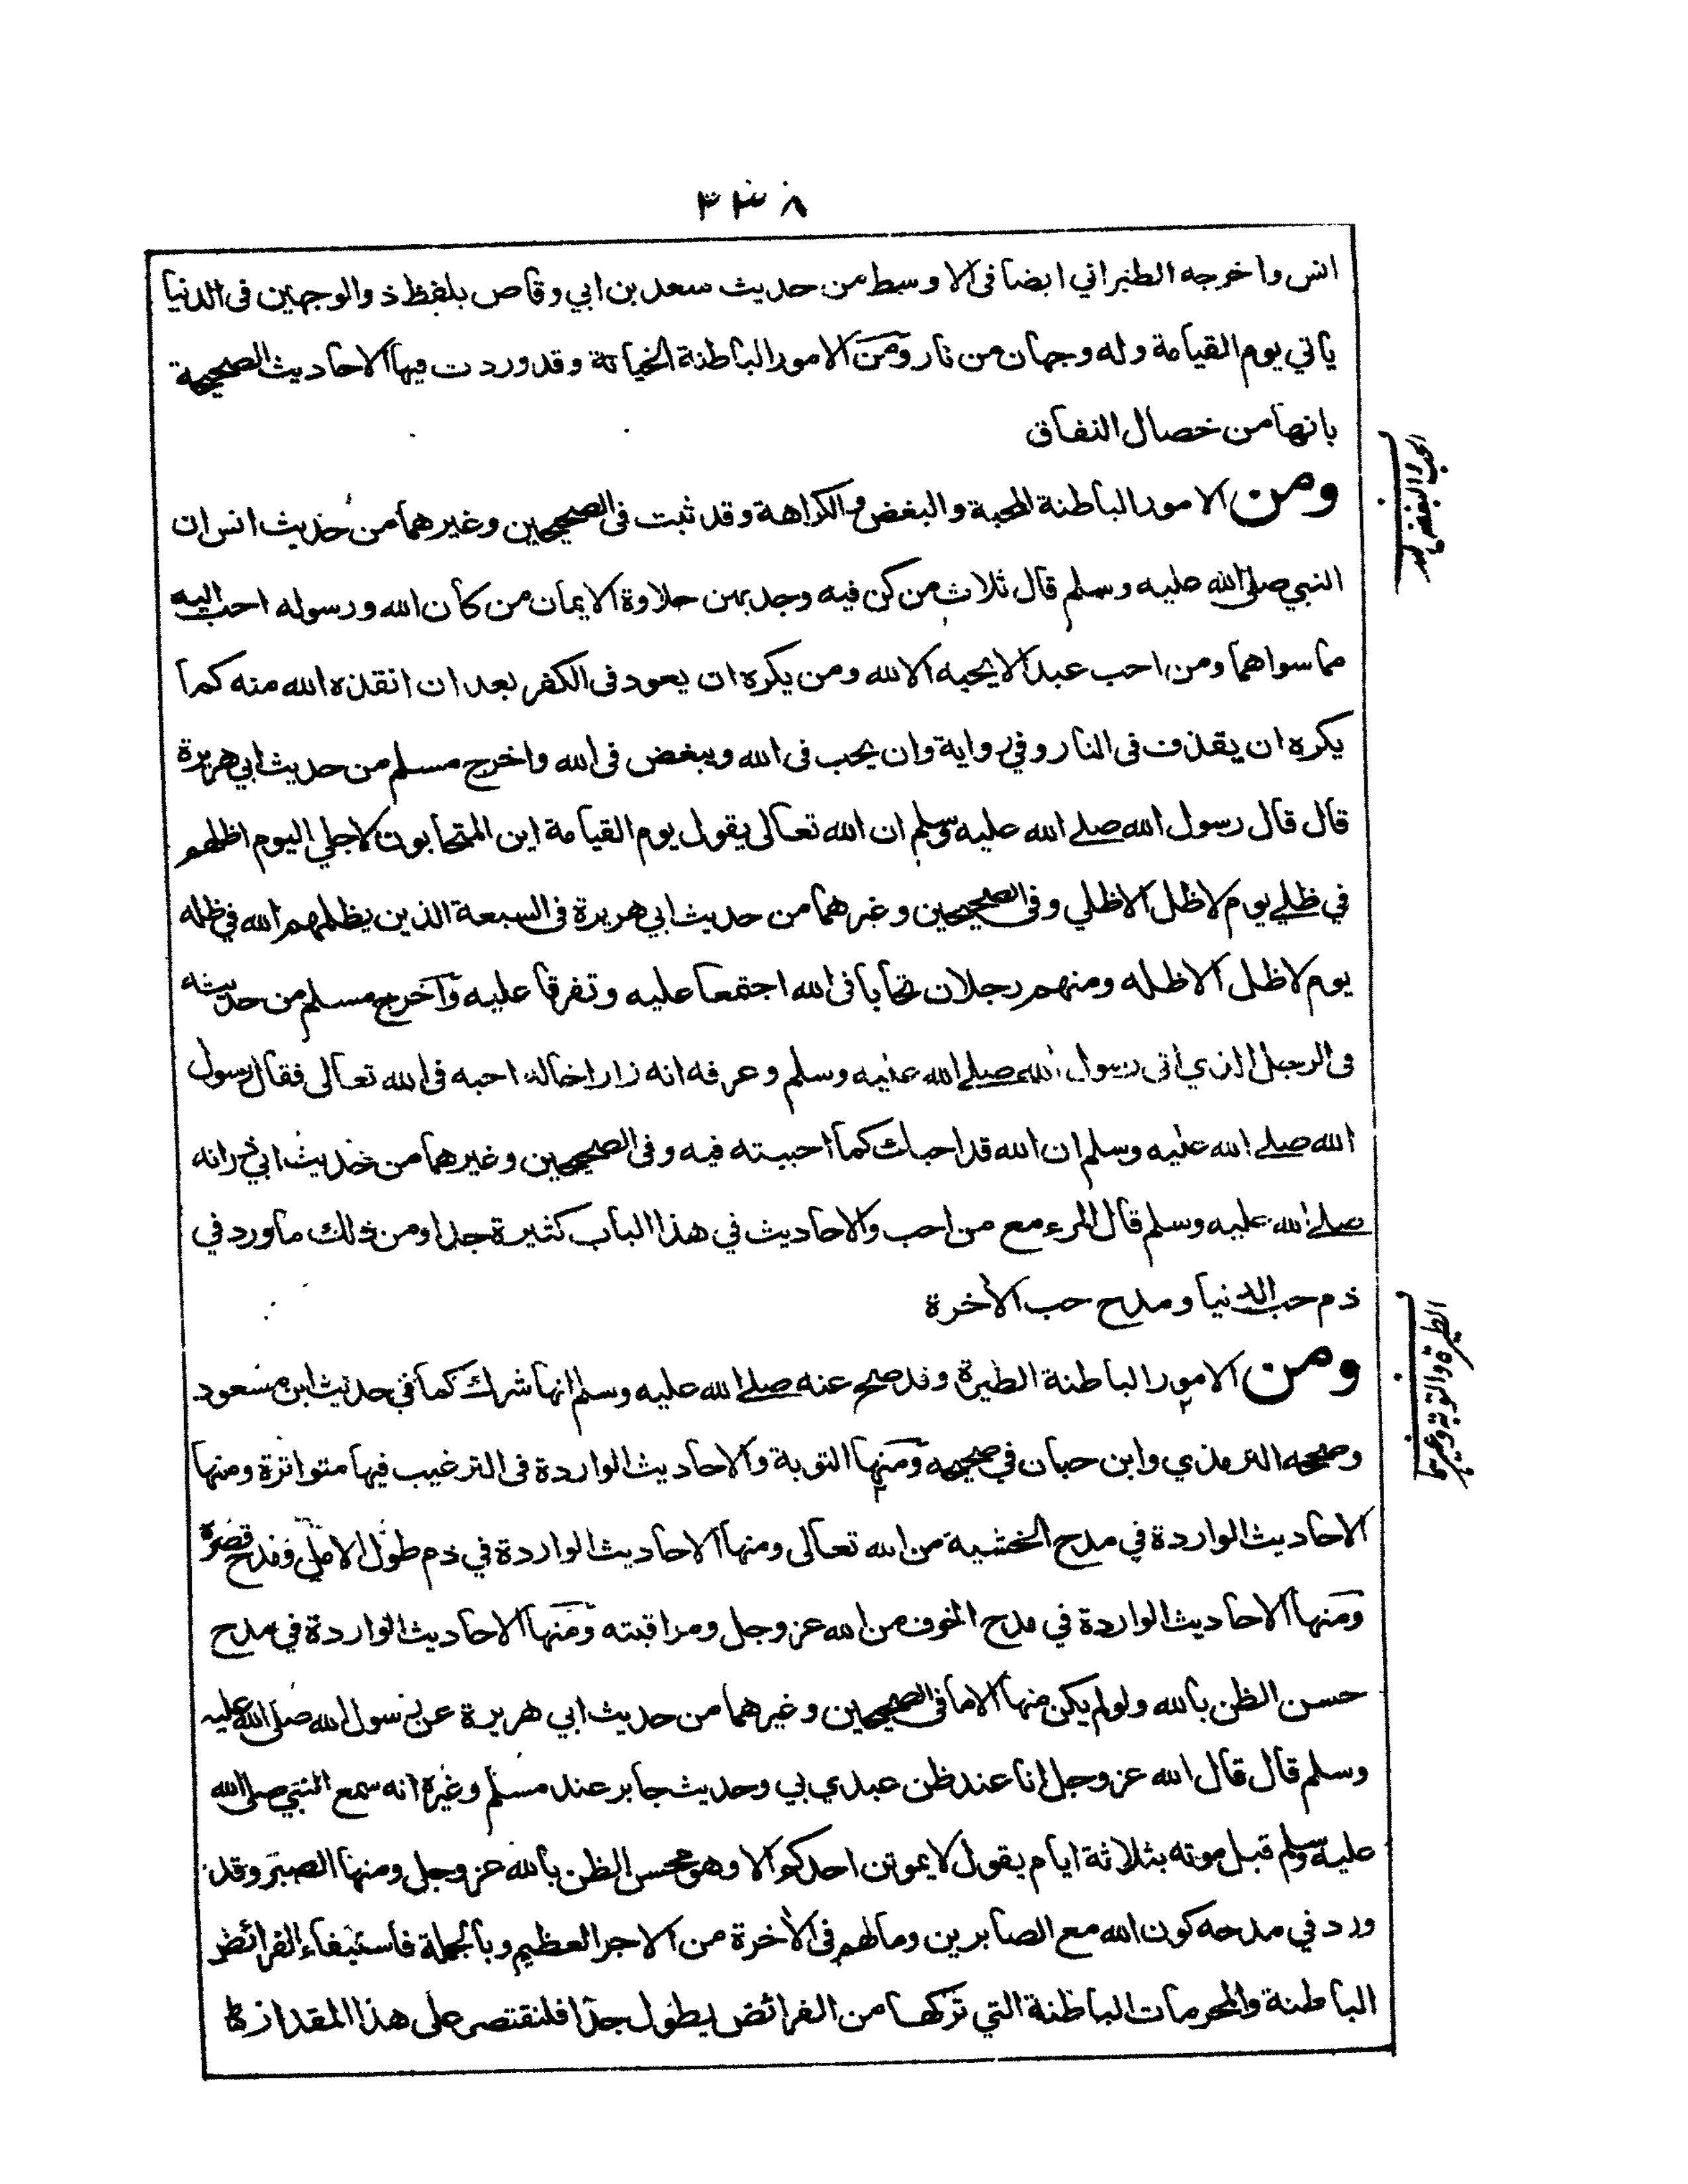 ٣٣٨
انس واخرجه الطبراني ايضا فى الاوسط من حديث سعد بن ابي وقاص بلفظ ذو الوجهين فى الدنيا
ياتي يوم القيامة وله وجهان من نار ومن الامور الباطنة الخيانة وقد وردت فيها الاحاديث الصحيحة
بانها من خصال النفاق
ومن الامور الباطنة المحبة والبغض والكراهة وقد ثبت فى الصحيحين وغيرهما من حديث انس ان
النبي صلى الله عليه وسلم قال ثلاث من كن فيه وجد بهن حلاوة الايمان من كان الله ورسوله احب اليه
مما سواهما ومن احب عبدا لا يحبه الا لله ومن يكره ان يعود فى الكفر بعد ان انقذه الله منه كما
يكره ان يقذف فى النار وفي رواية وان يحب فى الله ويبغض فى الله واخرج مسلم من حديث ابي هريرة
قال قال رسول الله صلے الله عليه وسلم ان الله تعالى يقول يوم القيامة اين المتحابون لاجلي اليوم اظلهم
في ظلي يوم لا ظل الا ظلي وفى الصحيحين وغيرهما من حديث ابي هريرة فى السبعة الذين يظلهم الله في ظله
يوم لا ظل الا ظله ومنهم رجلان تحابا فى الله اجتمعا عليه وتفرقا عليه واخرج مسلم من حديثه
فى الرجل الذي اتى رسول الله صلے الله عليه وسلم وعرفه انه زار اخا له احبه فى الله تعالى فقال رسول
الله صلے الله عليه وسلم ان الله قد احبك كما احببته فيه وفى الصحيحين وغيرهما من حديث ابي ذر انه
صلے الله عليه وسلم قال المرء مع من احب والاحاديث في هذا الباب كثيرة جدا ومن ذلك ما ورد في
ذم حب الدنيا ومدح حب الآخرة
ومن الامور الباطنة الطيرة وقد صح عنه صلے الله عليه وسلم انها شرك كما في حديث ابن مسعود
وصححه الترمذي وابن حبان في صحيحه ومنها التوبة والاحاديث الواردة فى الترغيب فيها متواترة ومنها
الاحاديث الواردة في مدح الخشية من الله تعالى ومنها الاحاديث الواردة في ذم طول الامل ومدح قصره
ومنها الاحاديث الواردة في مدح الخوف من الله عز وجل ومراقبته ومنها الاحاديث الواردة في مدح
حسن الظن بالله ولو لم يكن منها الا ما فى الصحيحين وغيرهما من حديث ابي هريرة عن رسول الله صلى الله عليه
وسلم قال قال الله عز وجل انا عند ظن عبدي بي وحديث جابر عند مسلم وغيره انه سمع النبي صلى الله
عليه وسلم قبل موته بثلاثة ايام يقول لا يموتن احدكم الا وهو محسن الظن بالله عز وجل ومنها الصبر وقد
ورد في مدحه كون الله مع الصابرين وما لهم فى الآخرة من الاجر العظيم وبالجملة فاستيفاء الفرائض
الباطنة والمحرمات الباطنة التي تركها من الفرائض يطول جدا فلنقتصر على هذا المقدار
الطيرة والتوبة وغيرها